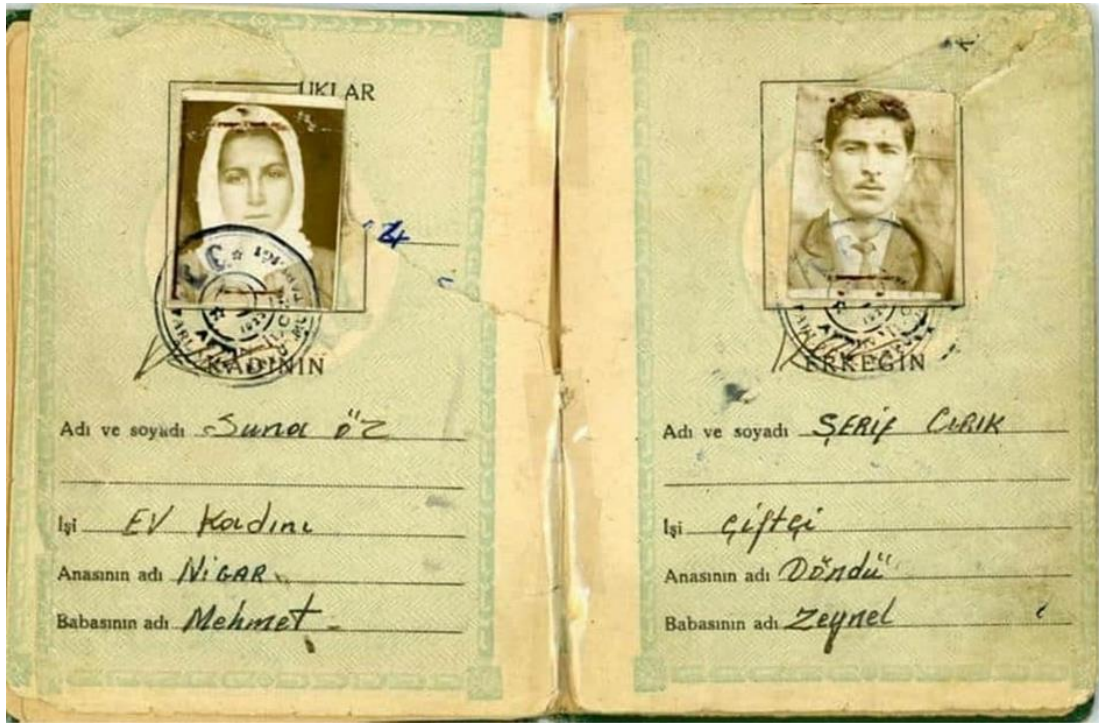 UKLAR
KADININ
Adı ve soyadı Suna ÖZ
İşi EV Kadını
Anasının adı NİGAR
Babasının adı Mehmet
ERKEĞİN
Adı ve soyadı ŞERİF CIRIK
İşi Çiftçi
Anasının adı Döndü
Babasının adı Zeynel